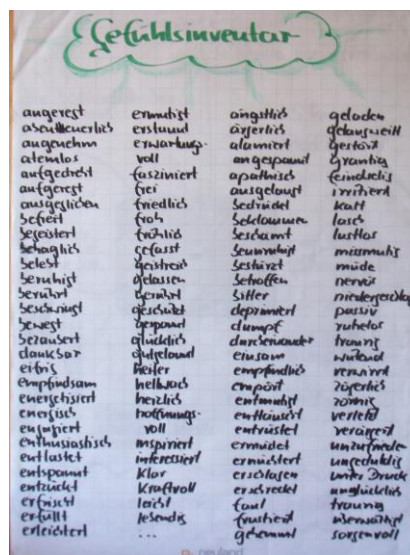 Gefühlsinventar
angeregt
abenteuerlich
angenehm
atemlos
aufgedreht
aufgeregt
ausgeglichen
befreit
begeistert
behaglich
belebt
beruhigt
berührt
beschwingt
bewegt
bezaubert
dankbar
eifrig
empfindsam
energetisiert
energisch
enthusiastisch
entlastet
entspannt
entzückt
erfrischt
erfüllt
erleichtert
ermutigt
erstaunt
erwartungs-
voll
fasziniert
frei
friedlich
froh
fröhlich
gefasst
geistreich
gelassen
gerührt
geschützt
gespannt
glücklich
gutgelaunt
heiter
hellwach
herzlich
hoffnungs-
voll
inspiriert
interessiert
klar
kraftvoll
leicht
lebendig
...
ängstlich
ärgerlich
alarmiert
angespannt
apathisch
ausgelaugt
bedrückt
beklommen
beschämt
beunruhigt
bestürzt
betroffen
bitter
deprimiert
dumpf
durcheinander
einsam
empfindlich
empört
entmutigt
enttäuscht
entrüstet
ermüdet
ernüchtert
erschlagen
erschreckt
faul
frustriert
gehemmt
geladen
gelangweilt
gestört
grantig
feindselig
irritiert
kalt
lasch
lustlos
missmutig
müde
nervös
niedergeschla
passiv
ruhelos
traurig
wütend
verwirrt
zögerlich
zornig
verletzt
verärgert
unzufriede
ungeduldig
unter Druck
unglücklich
traurig
sorgenvoll
neuland